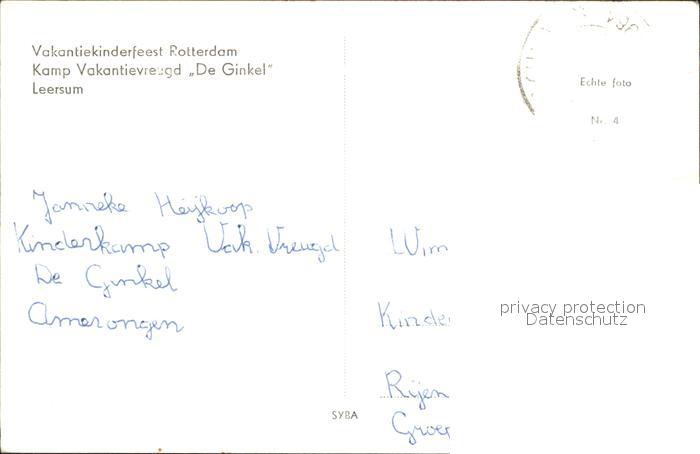 Vakantiekinderfeest Rotterdam
Kamp Vakantievreugd „De Ginkel"
Leersum
Echte foto
Nr. 4
Janneke Heijkoop
Kinderkamp Vak. Vreugd
De Ginkel
Amerongen
Wim
Kinder
Rijen
Groe
privacy protection
Datenschutz
SYBA